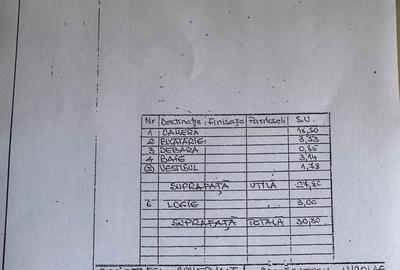 Nr Destinație Finisaje Pardoseli S.U.
1 CAMERA 18,30
2 BUCĂTĂRIE 3,53
3 DEBARA 0,85
4 BAIE 3,14
5 VESTIBUL 1,78
SUPRAFAȚĂ UTILĂ 27,80
6 LOGIE 3,00
SUPRAFAȚĂ TOTALĂ 30,80